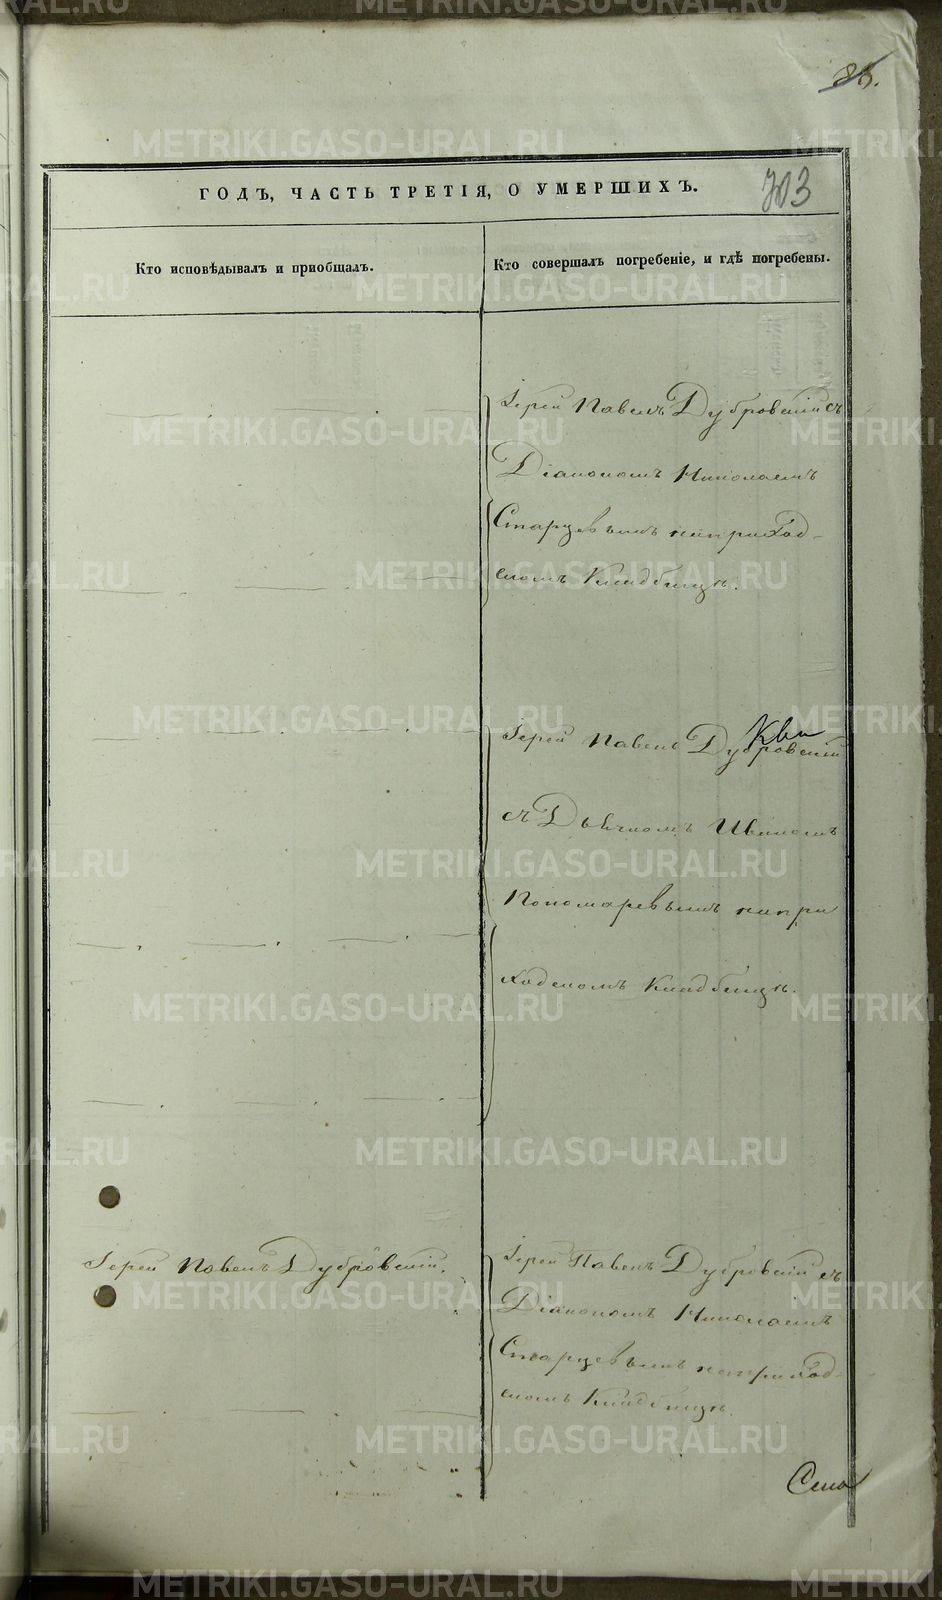 83.
703
ГОДЪ, ЧАСТЬ ТРЕТІЯ, О УМЕРШИХЪ.
Кто исповѣдывалъ и пріобщалъ.
Кто совершалъ погребеніе, и гдѣ погребены.
Іерей Павелъ Дубровскій съ
Діакономъ Николаемъ
Старцевымъ на приход-
скомъ Кладбищѣ.
Іерей Павелъ Дубровскій
съ Дьячкомъ Иваномъ
Пономаревымъ на при
ходскомъ Кладбищѣ.
Іерей Павелъ Дубровскій.
Іерей Павелъ Дубровскій съ
Діакономъ Николаемъ
Старцевымъ на приход-
скомъ Кладбищѣ.
METRIKI.GASO-URAL.RU